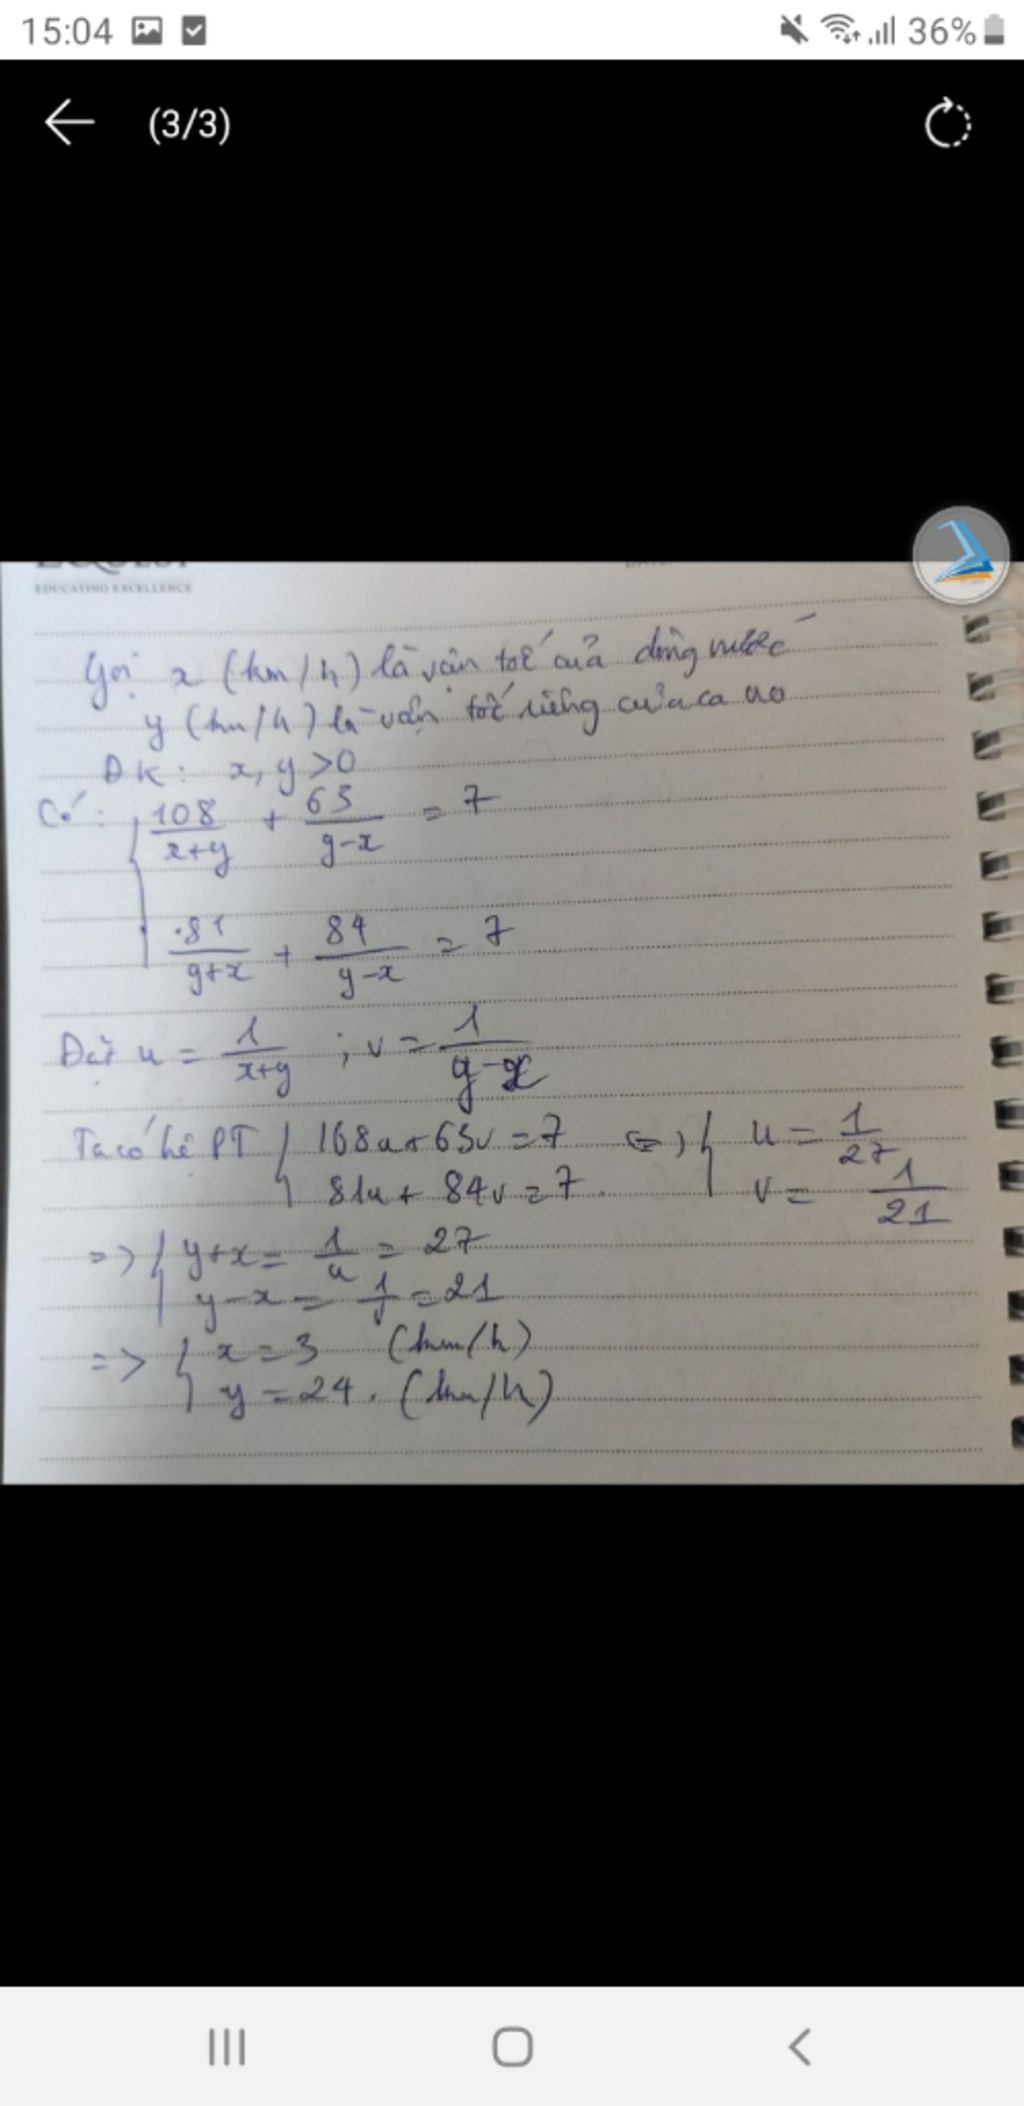 15:04 36%
(3/3)
EDUCATING EXCELLENCE
Gọi x (km/h) là vận tốc của dòng nước
y (km/h) là vận tốc riêng của ca no
ĐK: x, y >0
Có: 108/x+y + 63/y-x = 7
81/y+x + 84/y-x = 7
Đặt u = 1/x+y ; v = 1/y-x
Ta có hệ PT 108u + 63v = 7 <=> u = 1/27
81u + 84v = 7. v = 1/21
=> y+x = 1/u = 27
y-x = 1/v = 21
=> x = 3 (km/h)
y = 24. (km/h)